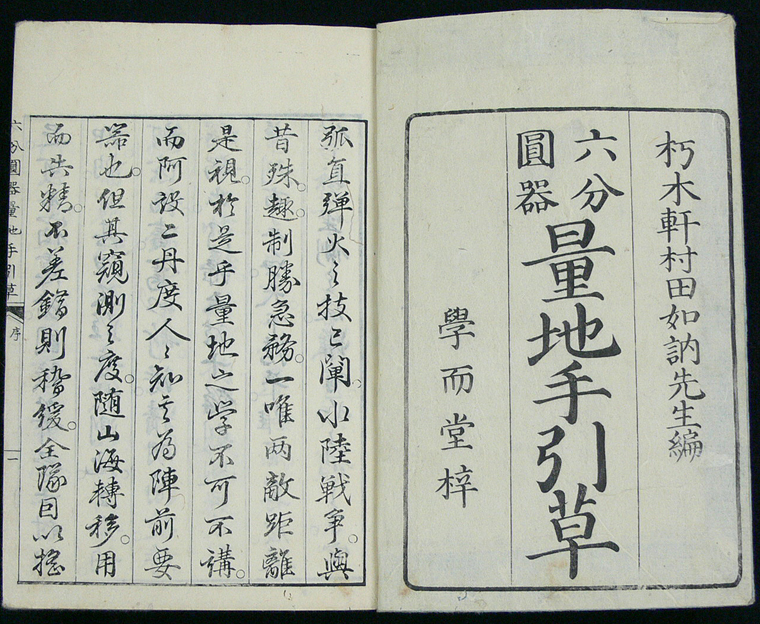 朽木軒村田如訥先生編
六分
圓器
量地手引草
學而堂梓
弧直弾火之技已闡。水陸戦争。與
昔殊。趣。制勝急務。一唯両敵距離
是視。於是乎量地之学不可不講。
而阿設二丹度人々知其為陣前要
器也。但其窺測之度。随山海轉移。用
而失精。不差錯則稽緩。全隊目以
六分圓器量地手引草
序
一